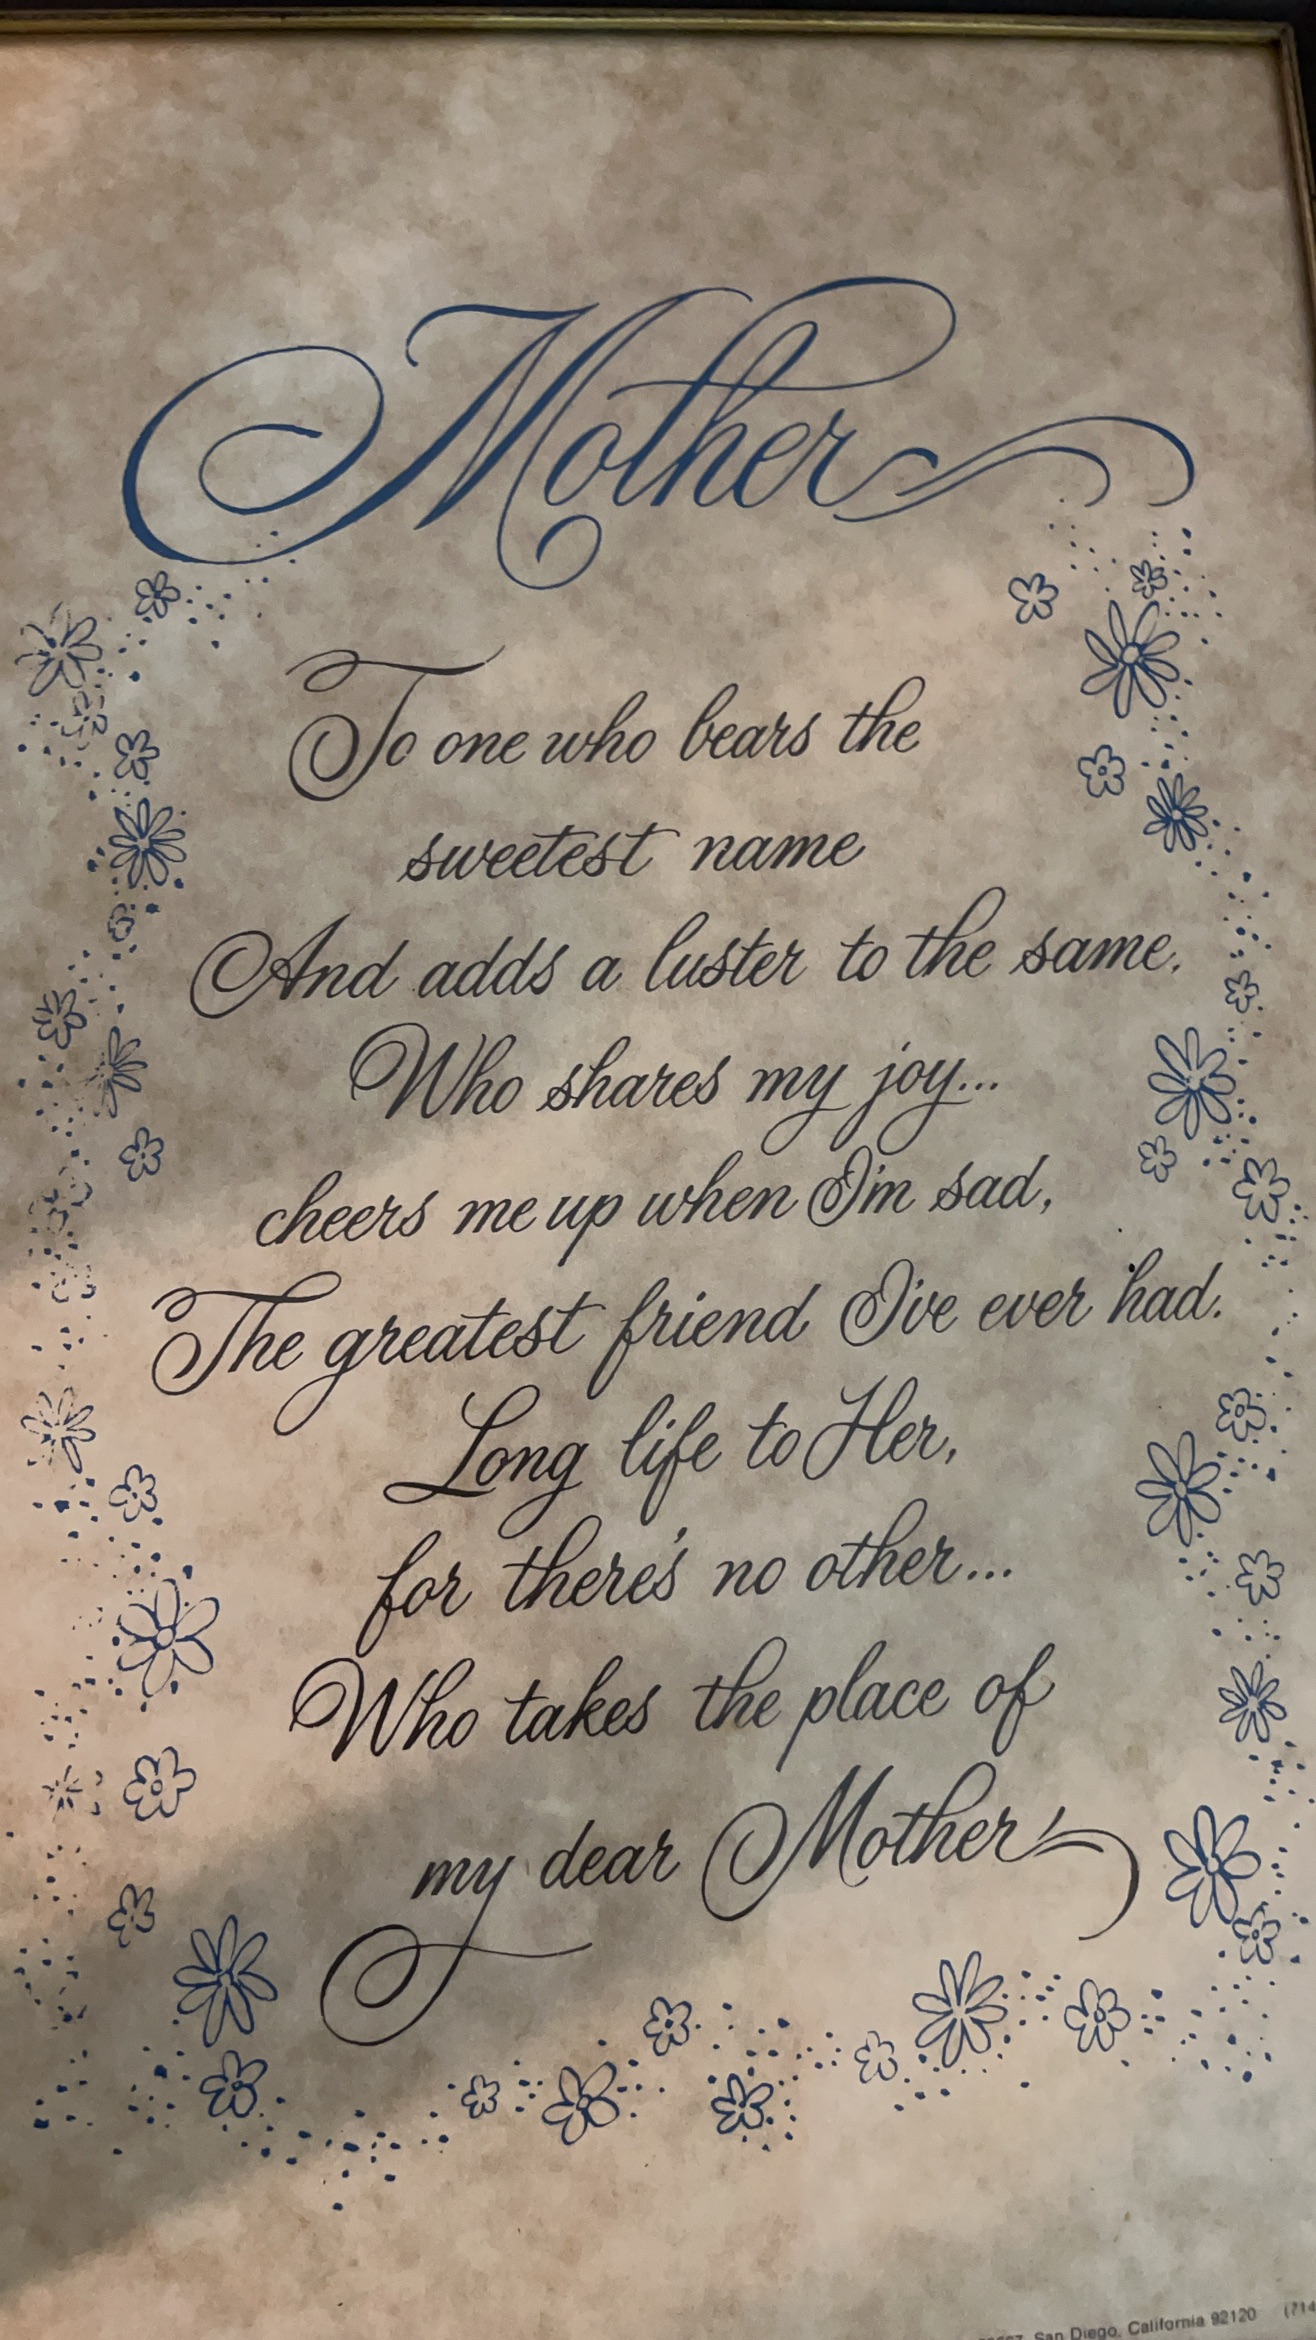 Mother
To one who bears the
sweetest name
And adds a luster to the same.
Who shares my joy...
cheers me up when I'm sad,
The greatest friend I've ever had.
Long life to Her,
for there's no other...
Who takes the place of
my dear Mother
San Diego, California 92120 (714